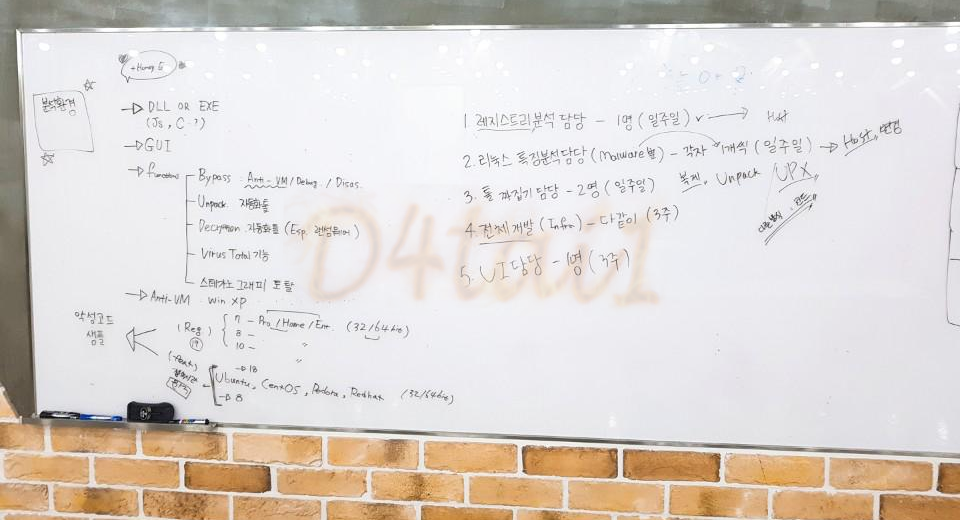 분석환경
→ DLL OR EXE
(Js, C ?)
→ GUI
→ functions
Bypass : Anti-VM / Debug / Disas.
Unpack 자동화툴
Decryption 자동화툴 (Esp. 랜섬웨어)
Virus Total 기능
스테가노그래피 토탈
→ Anti-VM : Win XP
악성코드
샘플
(Reg)
19
7 - Pro / Home / Ent. (32/64bit)
8 - "
10 - "
→ 18
Ubuntu, CentOS, Fedora, Redhat (32/64bit)
→ 8
1. 레지스트리분석 담당 - 1명 (일주일) →
2. 리눅스 특징분석담당 (Malware별) - 각자 1개씩 (일주일) →
3. 툴 짜집기 담당 - 2명 (일주일) 복제, Unpack UPX
4. 전체개발 (Infra) - 다같이 (3주)
5. UI 담당 - 1명 (3주)
D4tau1